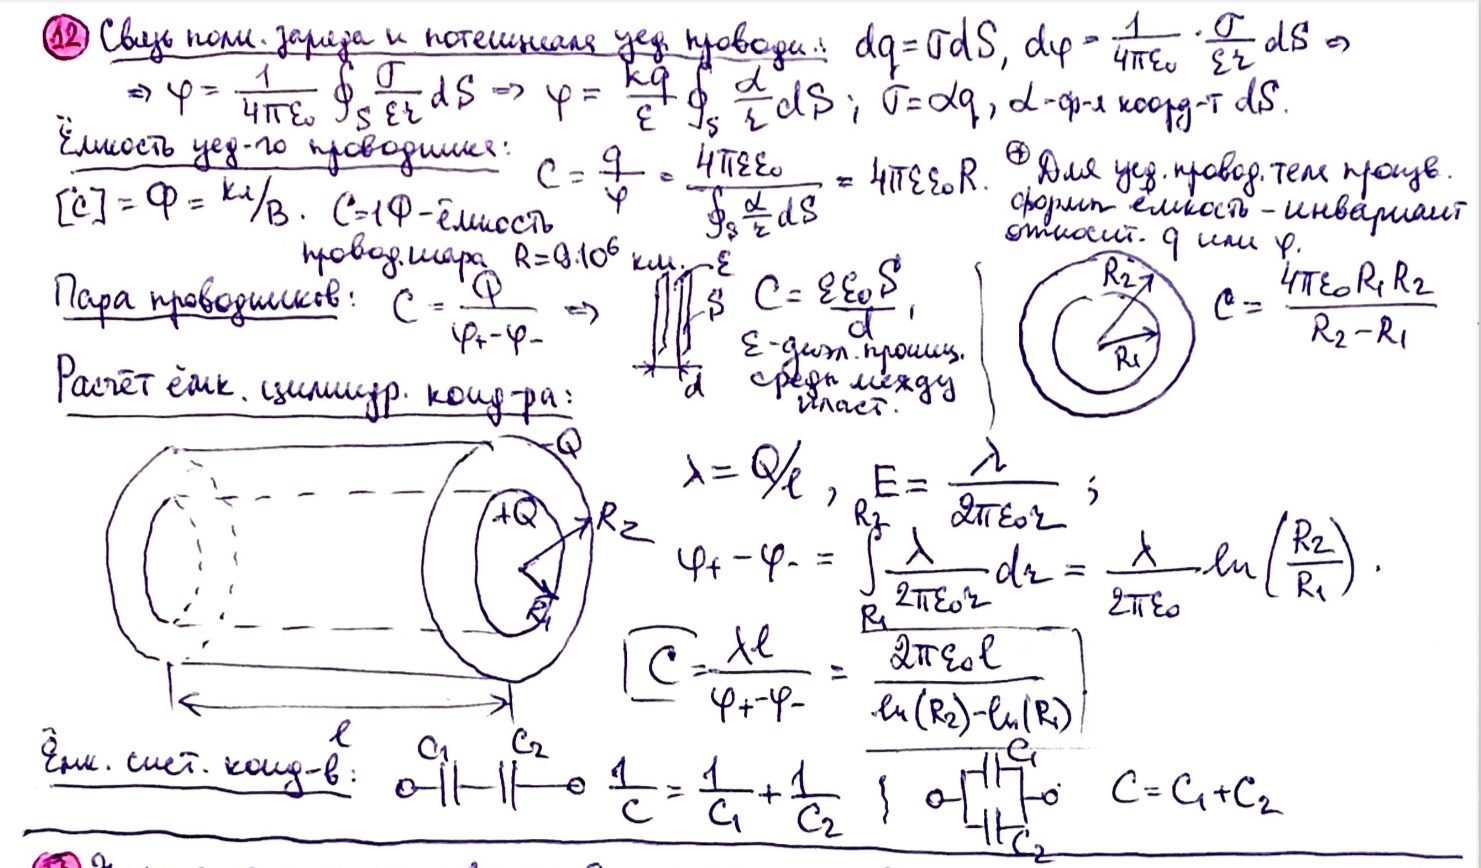 12 Связь полн. заряда и потенциала уед. проводн.: dq = σdS, dφ = 1/4πε₀ · σ/εr dS ⇒
⇒ φ = 1/4πε₀ ∮s σ/εr dS ⇒ φ = kq/ε ∮s α/r dS; σ = αq, α-ф-я коорд-т dS.
Ёмкость уед-го проводника: C = q/φ = 4πεε₀/∮s α/r dS = 4πεε₀R. ⊕ Для уед. провод. тела произв. формы ёмкость – инвариант относит. q или φ.
[C] = Ф = Кл/В. C=1Ф-ёмкость
провод. шара R=9·10⁶ км.
Пара проводников: C = Q/φ₊-φ₋ ⇒ ε S d C = εε₀S/d,
ε-диэл. прониц.
среды между
пласт.
R₂ R₁ C = 4πε₀R₁R₂/R₂-R₁
Расчёт ёмк. цилиндр. конд-ра:
-Q +Q R₂ R₁ l
λ = Q/l, E = λ/2πε₀r;
φ₊-φ₋ = ∫R₁R₂ λ/2πε₀r dr = λ/2πε₀ ln(R₂/R₁).
C = λl/φ₊-φ₋ = 2πε₀l/ln(R₂)-ln(R₁)
Ёмк. сист. конд-в: C₁ C₂ 1/C = 1/C₁ + 1/C₂ C₁ C₂ C = C₁+C₂